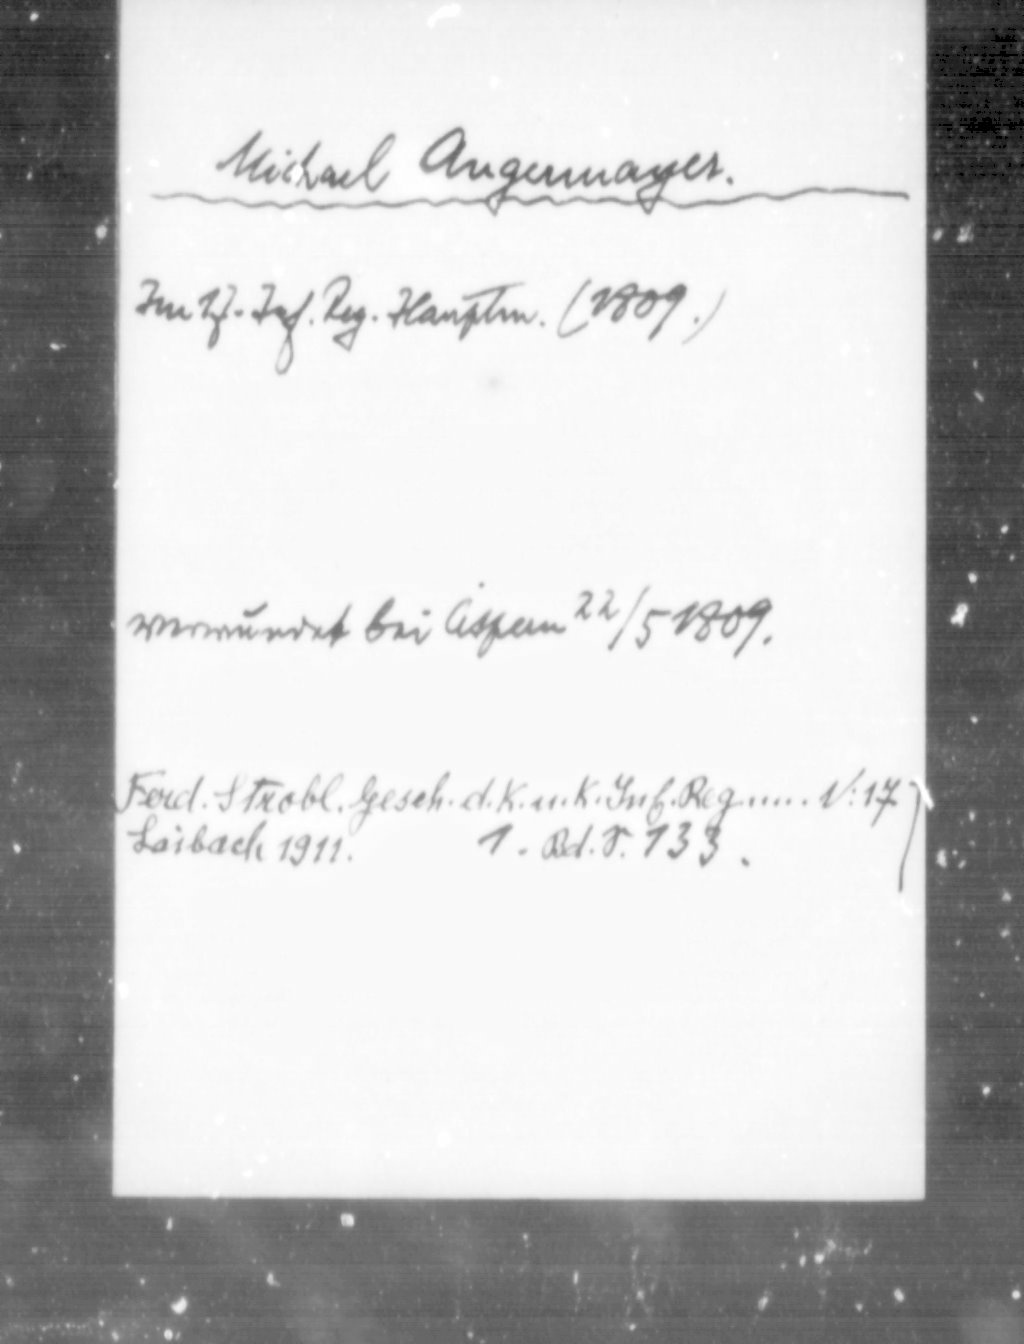 Michael Angermayer.
Im 17. Inf. Reg. Hauptm. (1809.)
verwundet bei Aspern 22/5 1809.
Ferd. Strobl. Gesch. d. K. u. K. Inf. Reg. N: 17
Laibach 1911. 1. Bd. S. 133.